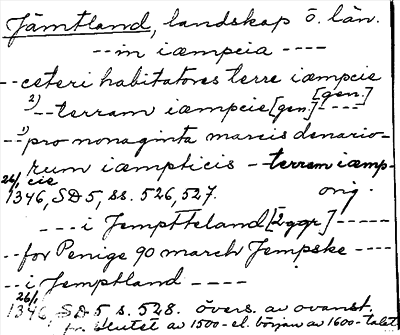 Jämtland, landskap ö. län.
-- in iæmpcia ----
-- ceteri habitatores terre iæmpcie
[gen.]
2) -- terram iæmpcie [gen.] ---
-- 1) pro nonaginta marcis denario-
rum iæmpticis - terram iæmp-
cie
26/1 1346, SD 5, ss. 526, 527. orig.
--- i Jemptteland [2 ggr] -----
-- for Penige 90 march Jempske ----
-- i Jemptland ----
26/1 1346, SD 5 s. 528. övers. av ovanst.
fr. slutet av 1500- el. början av 1600-talet